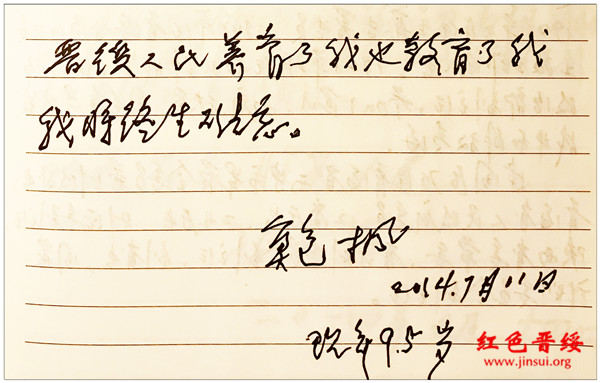 晋绥人民养育了我也教育了我
我将终生不忘。
枫
2014.7月11日
现年95岁
红色晋绥
www.jinsui.org